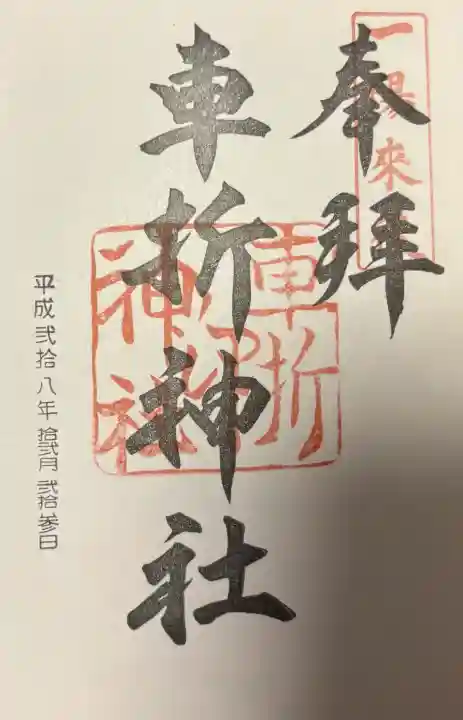 奉拝
一陽來
車折神社
車折
神社
平成弐拾八年拾弐月弐拾参日